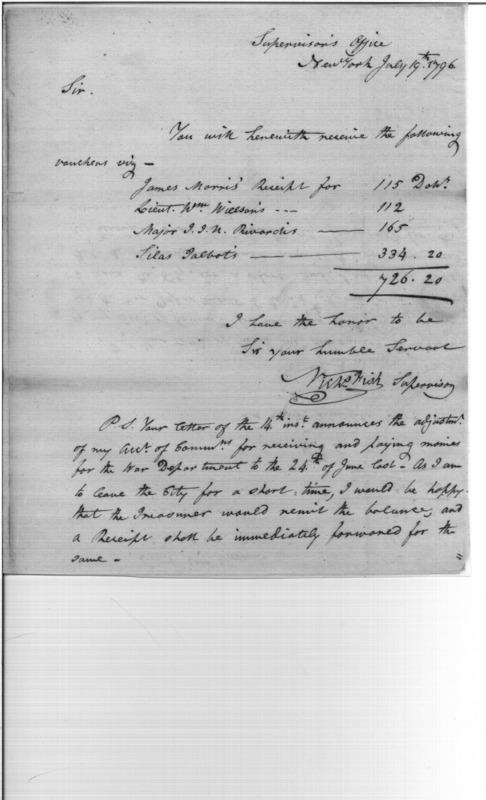 Supervisor's Office
New York July 19th. 1796
Sir.
You will herewith receive the following
vouchers viz —
James Morris' Receipt for 115 Dolls.
Lieut. Wm Willson's --- 112
Major J. J. U. Rivardis — 165
Silas Talbot's — 334. 20
726. 20
I have the honor to be
Sir your humble Servant
Nichs. Fish Supervisor
P S. Your letter of the 14th inst. announces the adjustmt.
of my acct. of Commns. for receiving and paying monies
for the War Department to the 24th of June last - As I am
to leave the City for a short time, I would be happy
that the Treasurer would remit the balance, and
a Receipt shall be immediately forwarded for the
same -